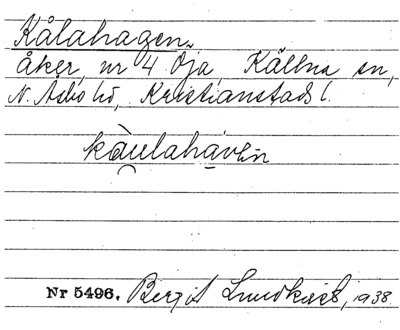 Kålahagen.
åker, nr 4 Öja, Källna sn,
N. Åsbo hd, Kristianstads l.
kàu̯lahàvən
Nr 5496. Bergit Lundkvist, 1938.